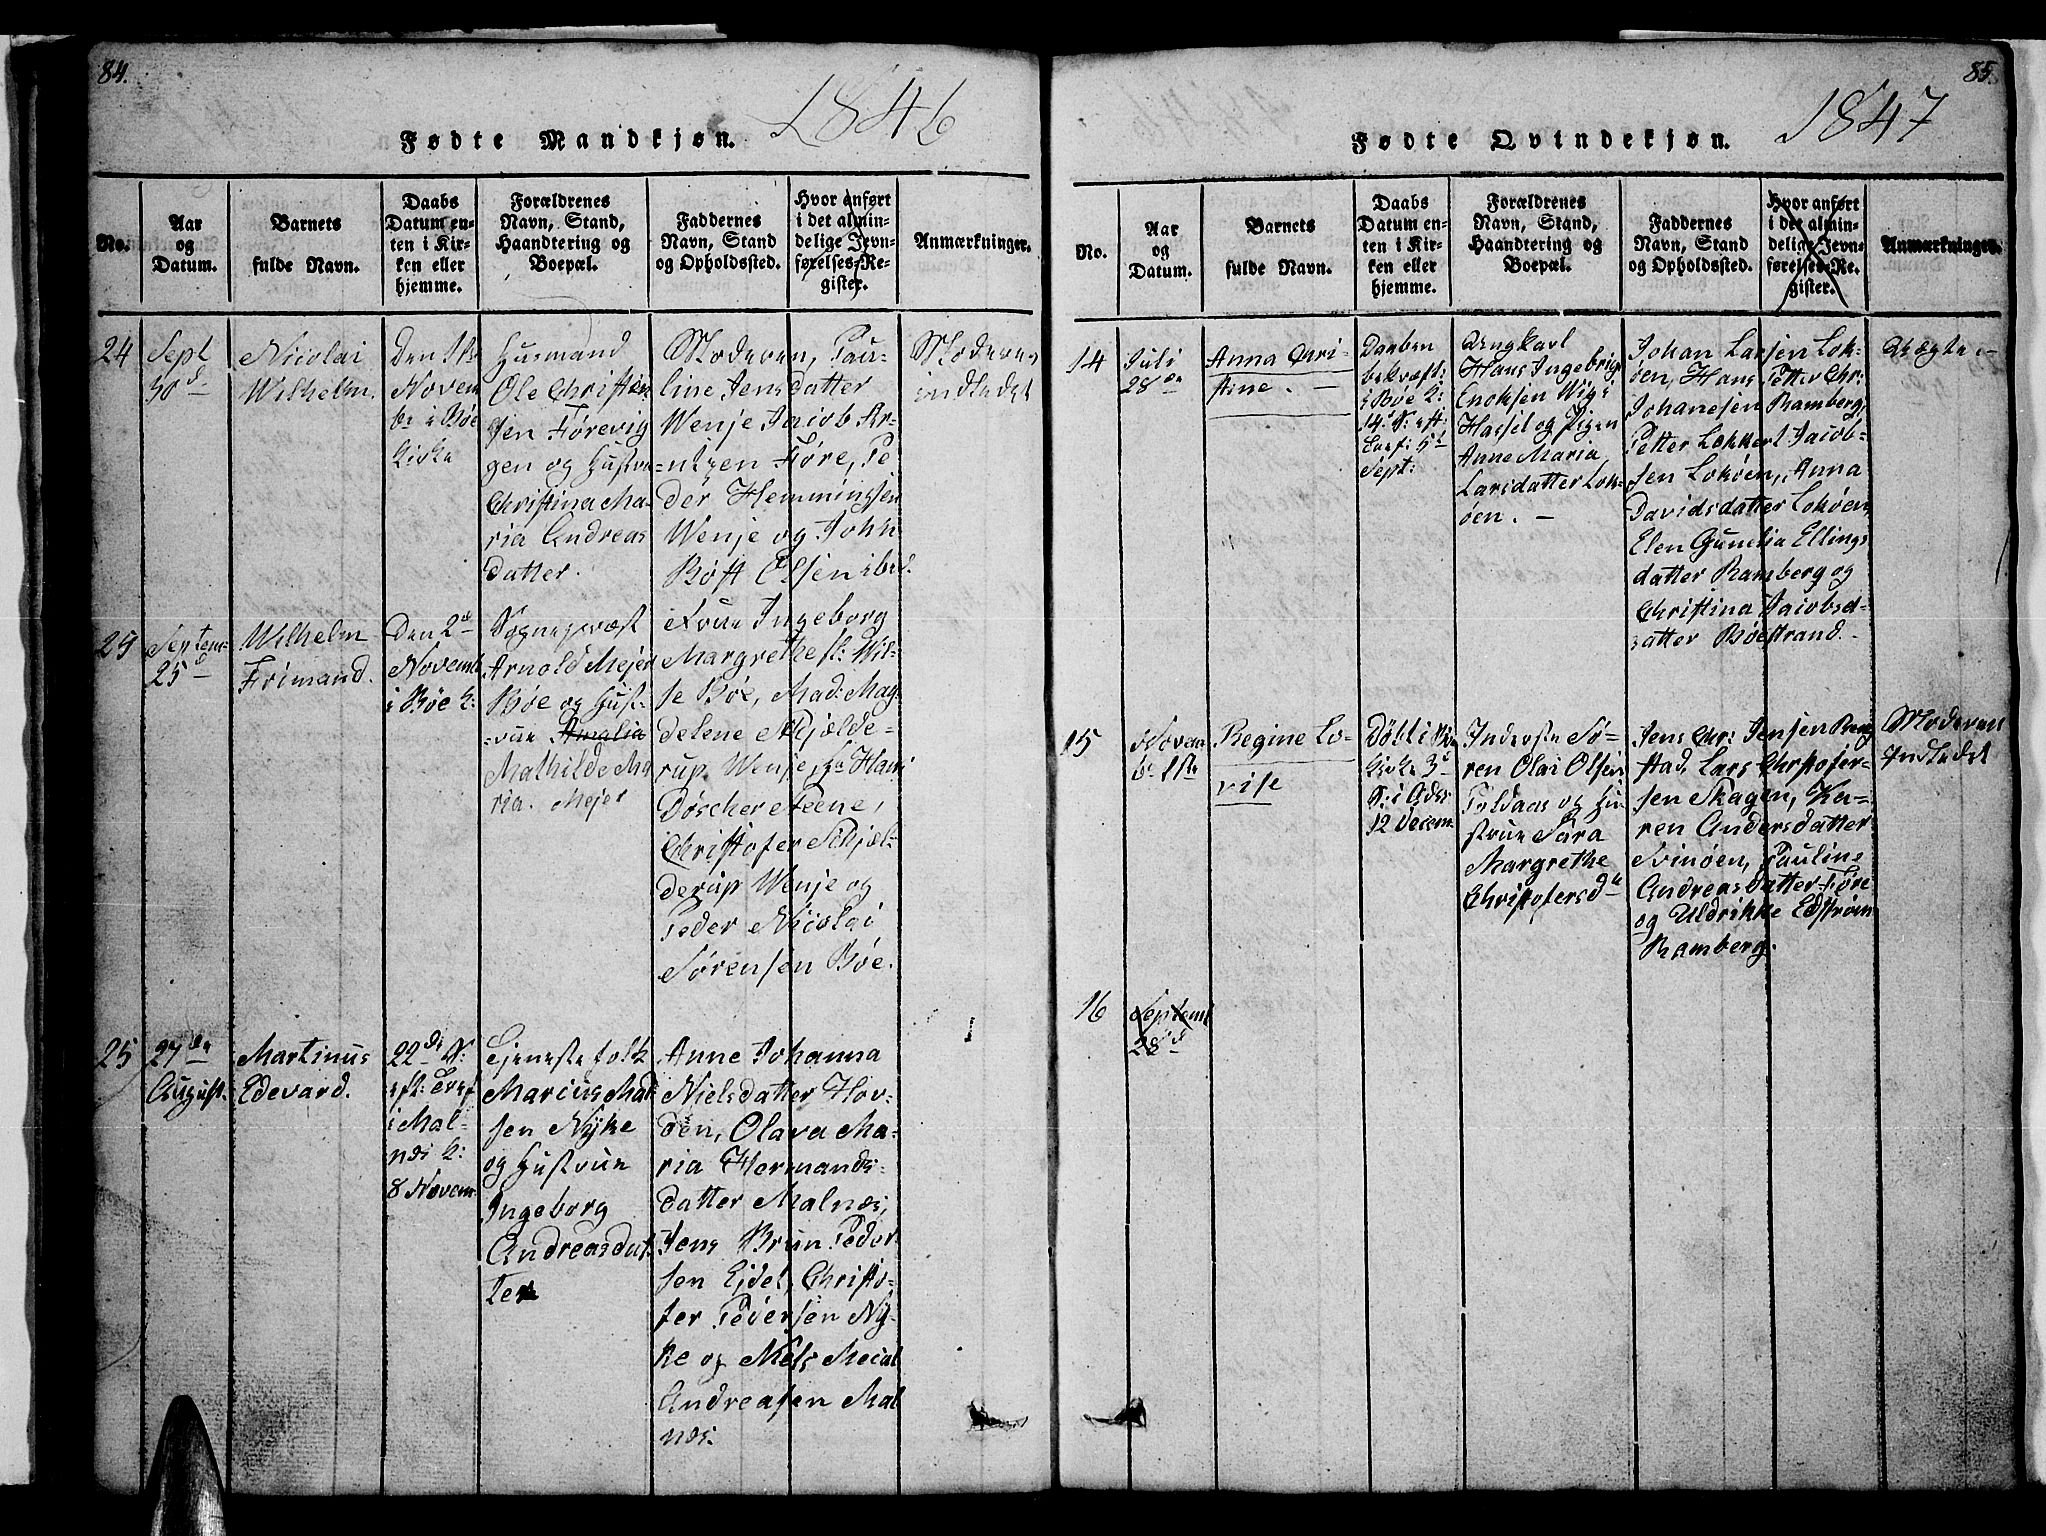 84.
1846
Fødte Mandkjøn.
No.
Aar
og
Datum.
Barnets
fulde Navn.
Daabs
Datum en-
ten i Kir-
ken eller
hjemme.
Forældrenes
Navn, Stand,
Haandtering og
Boepæl.
Faddernes
Navn, Stand
og Opholdssted.
Hvor anført
i det almin-
delige Jevn-
førelses-Re-
gister.
Anmærkninger.
24
Sept
30d
Nicolai
Wilhelm.
Den 1ste
Novem
br i Bøe
Kirke
Huusmand
Ole Christen
sen Førevig
gen og Hustru
Christina Ma-
ria Andreas
datter.
Moderen, Pau-
line Jensdatter
Wenje, Jacob Ar-
ntzen Føre, Pe
der Hemmingsen
Wenje og John
Bøft Olsen ibid.
Moderen
indledet
25
Septem-
25d
Wilhelm
Frimand.
Den 2de
Novemb
i Bøe K:
Sognepræst
Arnold Mejer
Bøe og Hust-
rue Amalia
Mathilde Ma
ria. Mejer
Frue Ingeborg
Margrethe sl: Wil-
se Bøe, Mad: Mag
delene Schjelde-
rup Wenje, Hr Hans
Døscher Steene,
Christofer Schjel-
derup Wenje og
Peder Nicolai
Sørensen Bøe.
25
27de
August.
Martinus
Edevard.
22de S:
eft: Tref
i Mal-
næs K:
8 Novem.
Tjenestefolk
Marcus Mat
sen Nyke
og Hustrue
Ingeborg
Andreasdat
ter
Anne Johanna
Nielsdatter Hov-
den, Olava Ma-
ria Hermands-
datter Malnæs,
Jens Brun Peder
sen Eidet, Christo-
fer Pedersen Ny-
ke og Niels
Andreasen Mal
næs.
85.
1847
Fødte Qvindekjøn.
No.
Aar
og
Datum.
Barnets
fulde Navn.
Daabs
Datum en-
ten i Kir-
ken eller
hjemme.
Forældrenes
Navn, Stand,
Haandtering og
Boepæl.
Faddernes
Navn, Stand
og Opholdssted.
Hvor anført
i det almin-
delige Jevn-
førelses-Re-
gister.
Anmærkninger.
14
Juli
28de
Anna Chri-
stine. –
Daaben
bekræft:
i Bøe K:
14d S: eft:
Tref: 5d
Sept:
Ungkarl
Hans Ingebrigt
Enoksen Wig i
Hassel og Pigen
Anne Maria
Larsdatter Lok-
øen. –
Johan Larsen Lok-
øen, Hans Petter Chr:
Johanesen Ramberg,
Petter Lokkert Jacob-
sen Lokøen, Anna
Davidsdatter Lokøen,
Elen Gunelia Ellings
datter Ramberg og
Christina Jacobsd-
datter Bøestrand.
Uægte –
15
Novem
br 1ste
Regine Lo-
vise
Døbt i Bøe
Kirke 3d
S: i Adv:
12 Decem.
Inderste Sø-
ren Olai Olsen
Tuldaas og Hu
strue Sara
Margrethe
Christofersdtr
Jens Chr: Jensen Ring
stad, Lars Christofer-
sen Skagen, Ka-
ren Andersdatter
Svinøen, Pauline
Andreasdatter Føre
og Uldrikke Edstrøm
Ramberg.
Moderen
Indledet
16
Septemb
28d